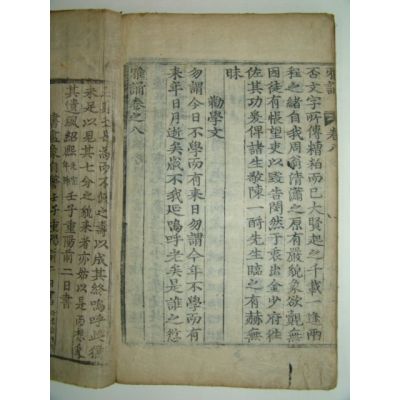 雅誦 卷八
否文字所傳糟粕而已大賢起之千載一逢兩
程之緒自我周翁清瀟之原有嚴貌象欲覿無
因徒有悵望玆以毀告閔然于衷出金少府徃
佐其功爰俾諸生敬陳一酹先生臨之有赫無
昧
勸學文
勿謂今日不學而有來日勿謂今年不學而有
來年日月逝矣歲不我延嗚呼老矣是誰之愆
雅誦卷之八
爲而不傳之壽以成其終嗚呼此猶
未足以見其七分之貌來者亦姑以是而想象
其遺風紹熙壬子重陽前二日書